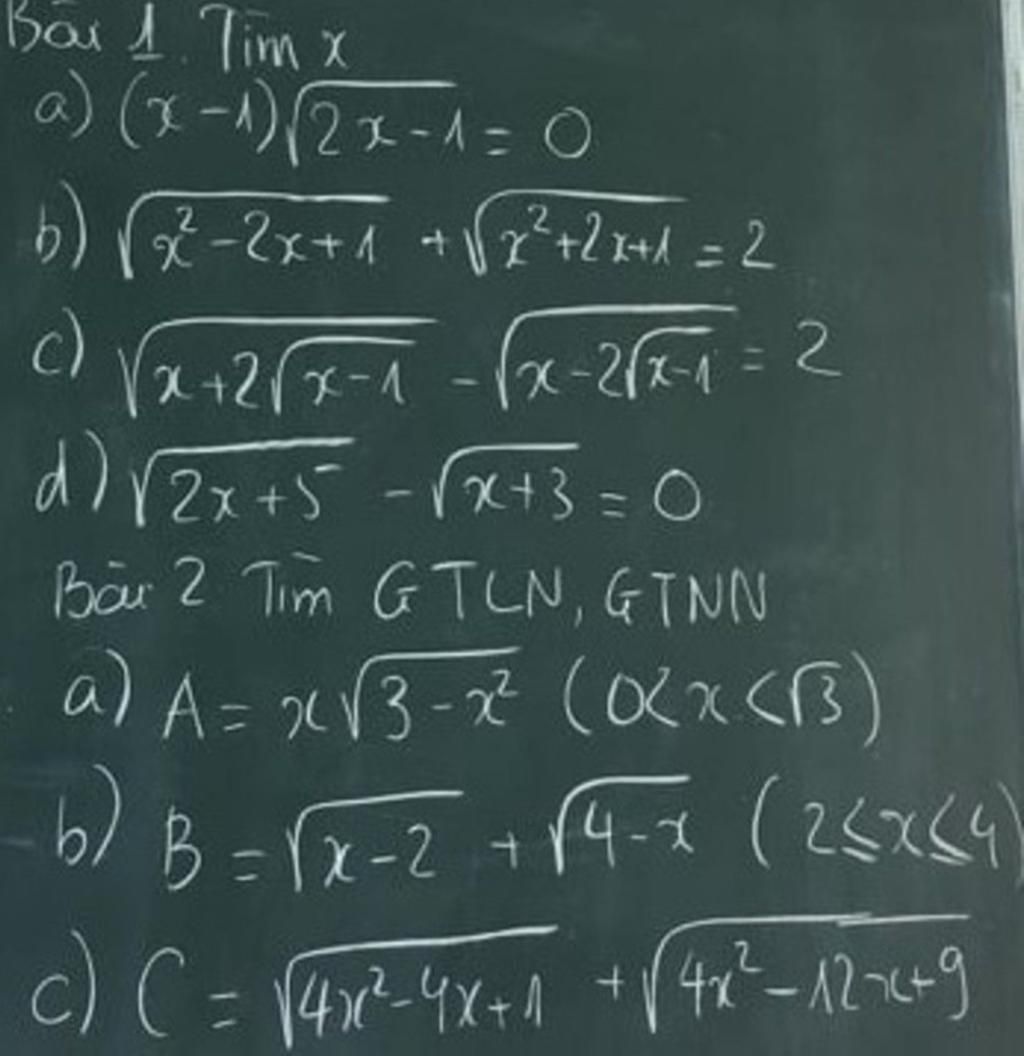 Bài 1. Tìm x
a) (x-1)√(2x-1) = 0
b) √(x²-2x+1) + √(x²+2x+1) = 2
c) √(x+2√(x-1)) - √(x-2√(x-1)) = 2
d) √(2x+5) - √(x+3) = 0
Bài 2 Tìm GTLN, GTNN
a) A = x√(3-x²) (0<x<√3)
b) B = √(x-2) + √(4-x) (2≤x≤4)
c) C = √(4x²-4x+1) + √(4x²-12x+9)